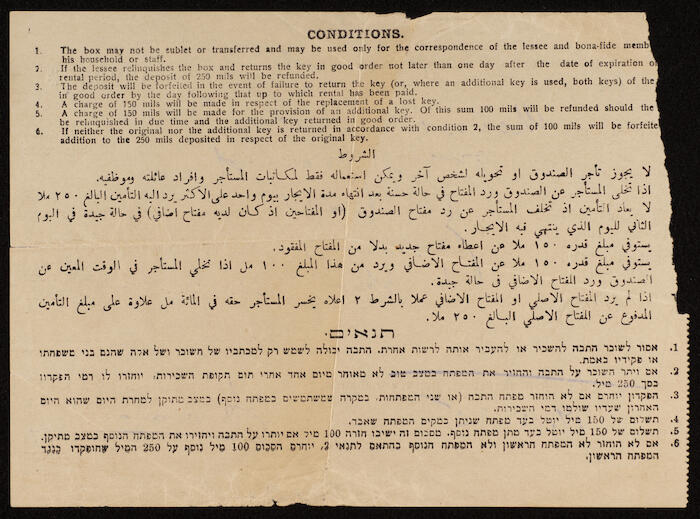 CONDITIONS.
1. The box may not be sublet or transferred and may be used only for the correspondence of the lessee and bona-fide memb
his household or staff.
2. If the lessee relinquishes the box and returns the key in good order not later than one day after the date of expiration o
rental period, the deposit of 250 mils will be refunded.
3. The deposit will be forfeited in the event of failure to return the key (or, where an additional key is used, both keys) of the
in good order by the day following that up to which rental has been paid.
4. A charge of 150 mils will be made in respect of the replacement of a lost key.
5. A charge of 150 mils will be made for the provision of an additional key. Of this sum 100 mils will be refunded should the
be relinquished in due time and the additional key returned in good order.
6. If neither the original nor the additional key is returned in accordance with condition 2, the sum of 100 mils will be forfeite
addition to the 250 mils deposited in respect of the original key.
الشروط
لا يجوز تأجر الصندوق او تحويله لشخص آخر ويمكن استعماله فقط لمكاتبات المستأجر وافراد عائلته وموظفيه.
اذا تخلى المستأجر عن الصندوق ورد المفتاح في حالة حسنة بعد انتهاء مدة الايجار بيوم واحد على الأكثر يرد اليه التأمين البالغ ٢٥٠ ملا
لا يعاد التأمين اذ تخلف المستأجر عن رد مفتاح الصندوق (او المفتاحين اذ كان لديه مفتاح اضافي) في حالة جيدة في اليوم
الثاني لليوم الذي ينتهي فيه الايجار.
يستوفي مبلغ قدره ١٥٠ ملا عن اعطاء مفتاح جديد بدلا من المفتاح المفقود.
يستوفي مبلغ قدره ١٥٠ ملا عن المفتاح الاضافي ويرد من هذا المبلغ ١٠٠ مل اذا تخلي المستأجر في الوقت المعين عن
الصندوق ورد المفتاح الاضافي في حالة جيدة.
اذا لم يرد المفتاح الاصلي او المفتاح الاضافي عملا بالشرط ٢ اعلاه يخسر المستأجر حقه في المائة مل علاوة على مبلغ التأمين
المدفوع عن المفتاح الاصلي البالغ ٢٥٠ ملا.
תנאים.
1. אסור לשוכר התבה להשכיר או להעביר אותה לרשות אחרת. התבה יכולה לשמש רק למכתביו של השוכר ושל אלה שהנם בני משפחתו
או פקידיו באמת.
2. אם ויתר השוכר על התבה והחזיר את המפתח במצב טוב לא מאוחר מיום אחד אחרי תום תקופת השכירות, יוחזרו לו דמי הפקדון
בסך 250 מיל.
3. הפקדון יוחרם אם לא הוחזר מפתח התבה (או שני המפתחות, במקרה שמשתמשים במפתח נוסף) במצב מתוקן למחרת היום שהוא היום
האחרון שעדיו שולמו דמי השכירות.
4. תשלום של 150 מיל יוטל בעד מפתח שניתן במקום המפתח שאבד.
5. תשלום של 150 מיל יוטל בעד מתן מפתח נוסף. מסכום זה ישיבו חזרה 100 מיל אם יותרו על התבה ויחזירו את המפתח הנוסף במצב מתוקן.
6. אם לא הוחזר לא המפתח הראשון ולא המפתח הנוסף בהתאם לתנאי 2, יוחרם הסכום 100 מיל נוסף על 250 המיל שהופקדו כנגד
המפתח הראשון.